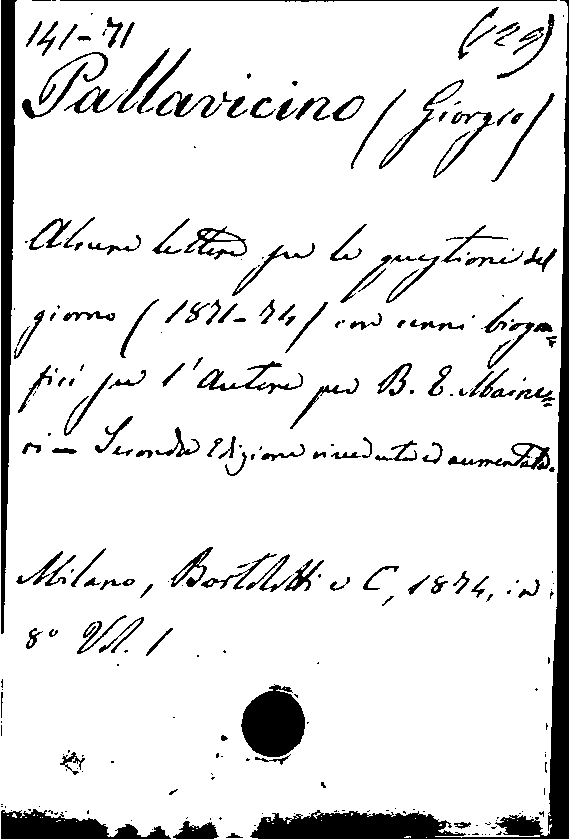 141-71 (129)
Pallavicino (Giorgio)
Alcune lettere su le questioni del
giorno (1871-74) con cenni biogra=
fici su l'Autore per B. E. Maine=
ri - Seconda Edizione riveduta ed aumentata.
Milano, Bortolotti e C, 1874, in
8° Vol. 1